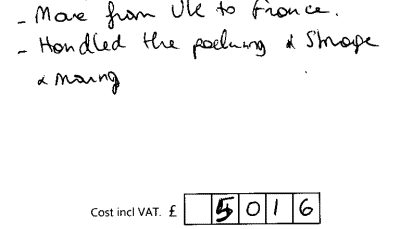 - Move from UK to France.
- Handled the packing & Storage
& moving
Cost incl VAT. £ 5016